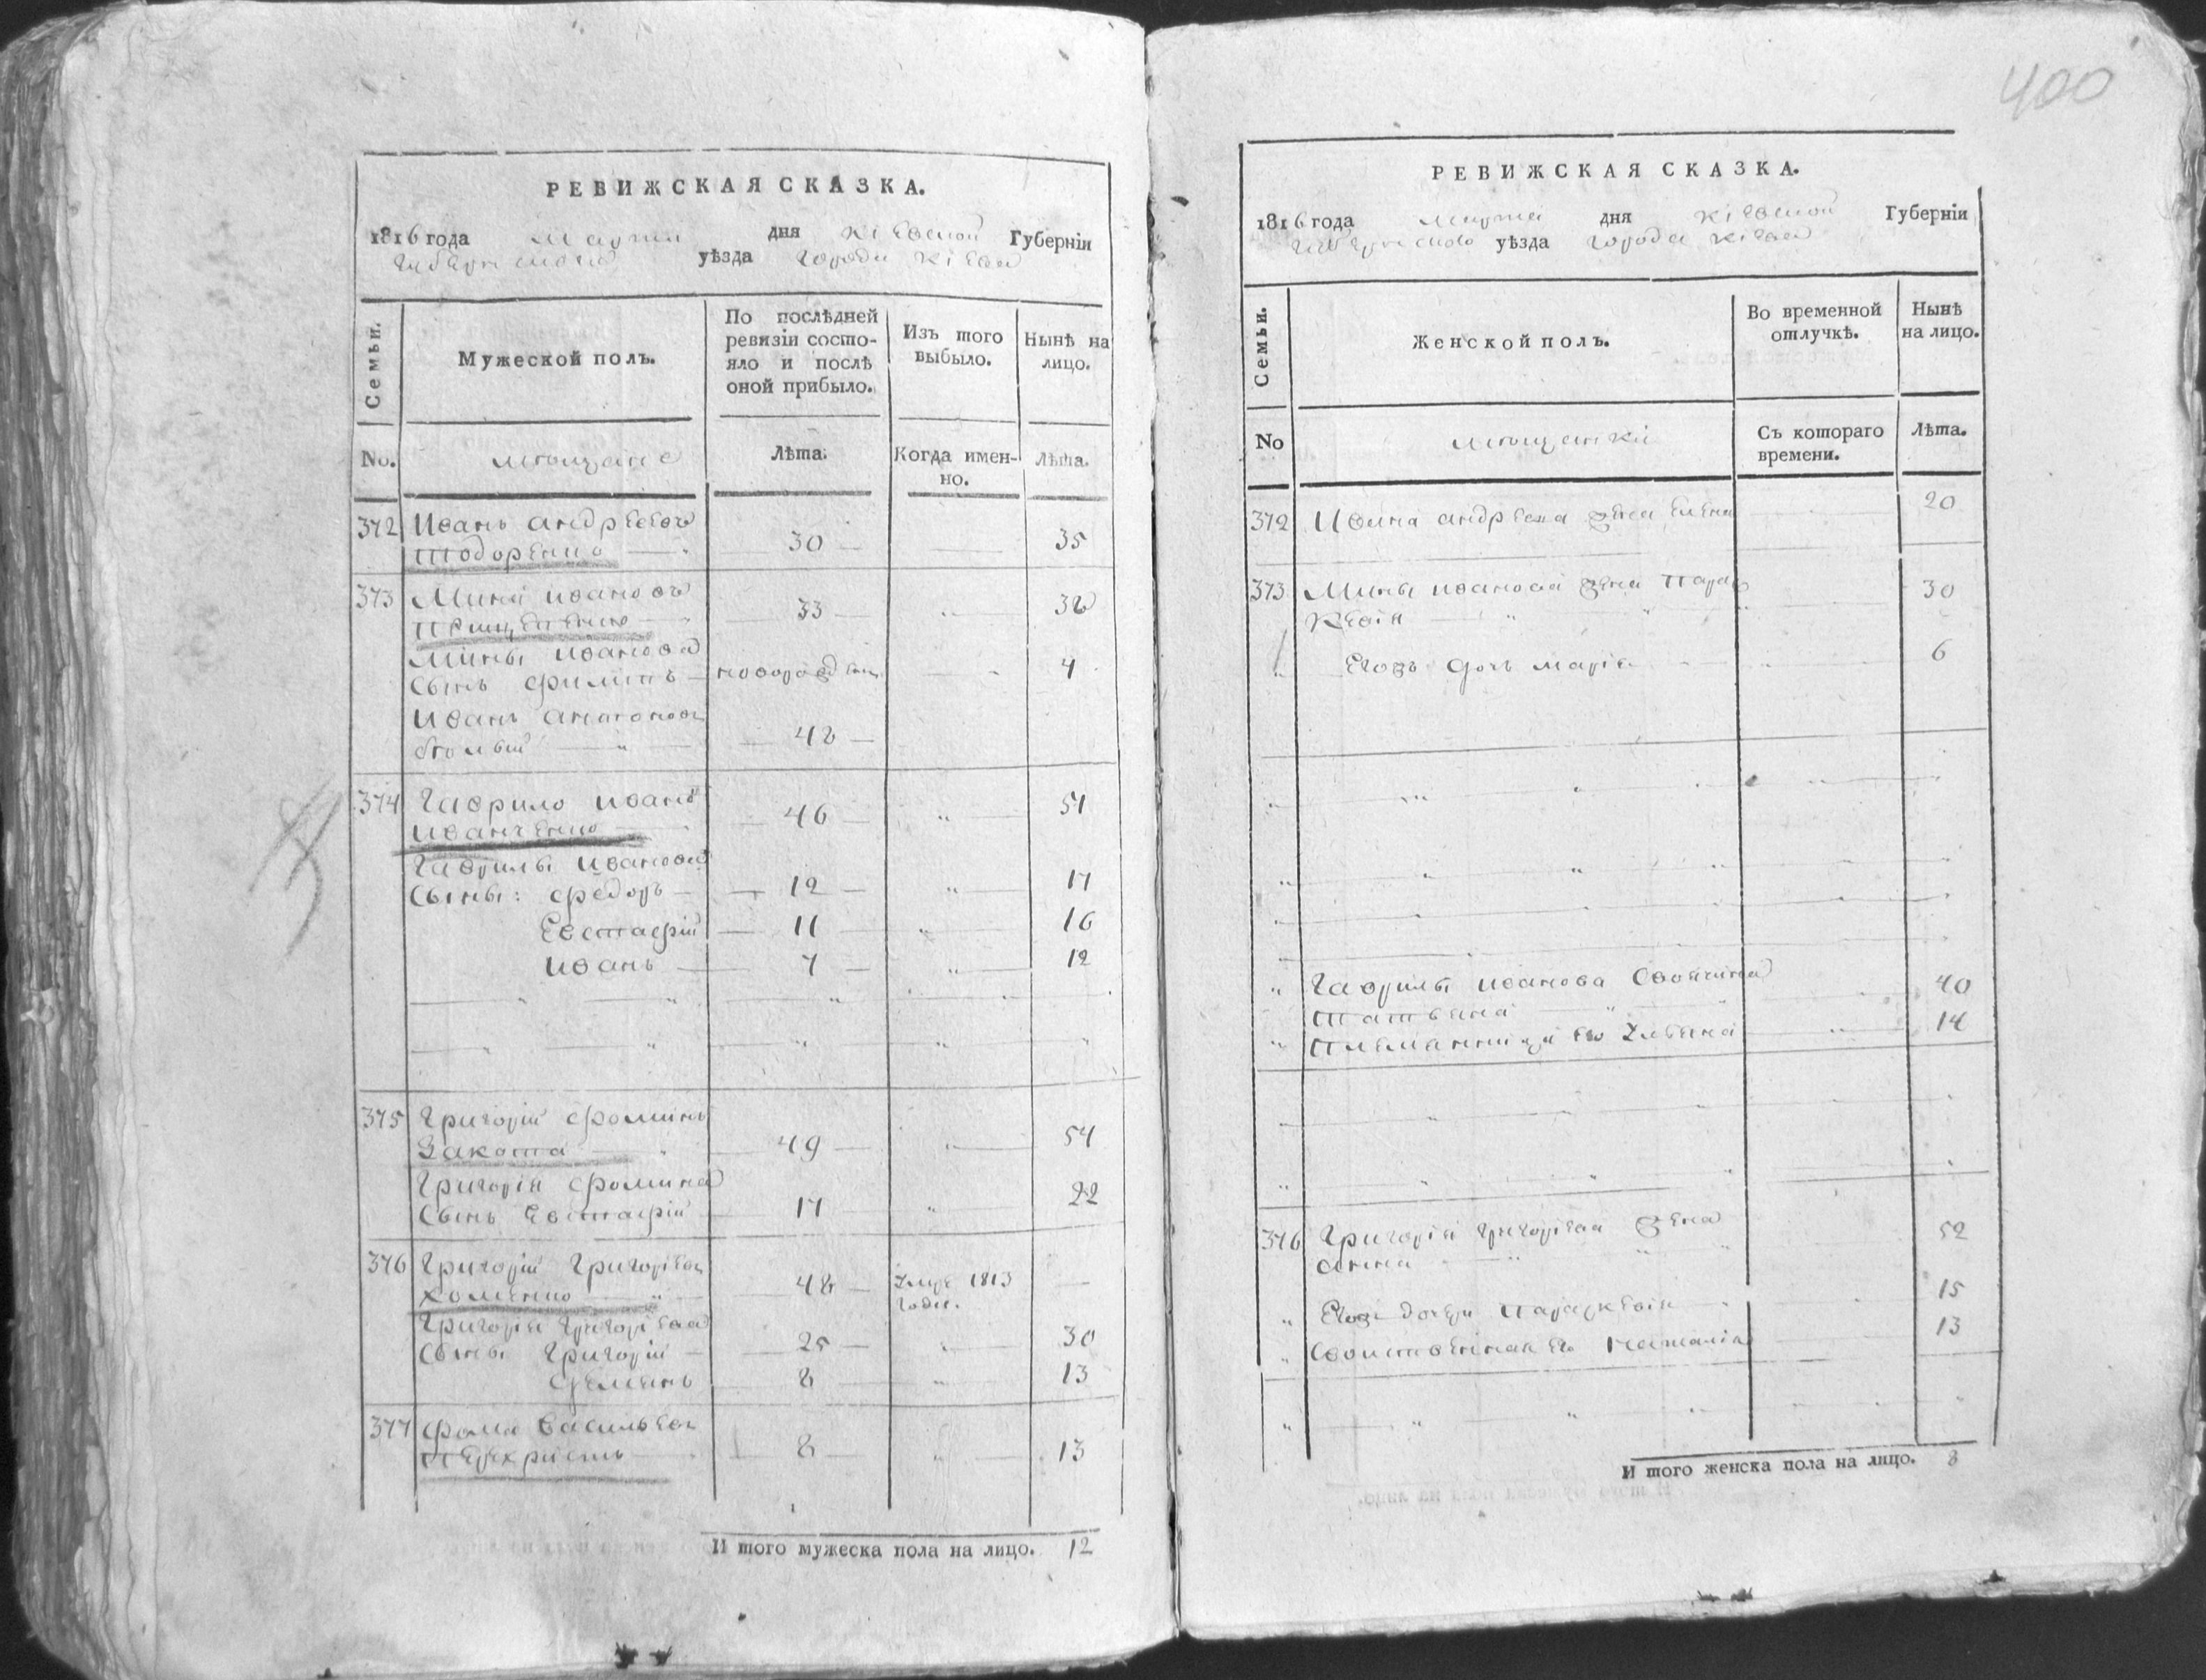 400
РЕВИЖСКАЯ СКАЗКА.
1816 года марта дня Кіевской Губерніи
Губернского уѣзда города Кіева
Семьи.
Мужеской полъ.
По послѣдней ревизіи состояло и послѣ оной прибыло.
Изъ того выбыло.
Нынѣ на лицо.
No. мѣщане Лѣта. Когда именно. Лѣта.
372 Иванъ андрѣевъ
тодоренко 30 35
373 Мина ивановъ
33 38
Мины иванова
сынъ филипъ новорожден 4
Иванъ антоновъ
48
374 Гаврило ивановъ
иванченко 46 51
Гаврилы иванова
Сыны: федоръ 12 17
Евстафій 11 16
иванъ 7 12
375 Григорій фоминъ
Закота 49 54
Григорія фомина
Сынъ Евстафій 17 22
376 Григорій Григоріевъ
хоменко 48 1813
году.
Григорія григоріева
Сыны Григорій 25 30
Семенъ 8 13
377 фома васильевъ
перехристъ 8 13
И того мужеска пола на лицо. 12
РЕВИЖСКАЯ СКАЗКА.
1816 года марта дня Кіевской Губерніи
Губернского уѣзда города Кіева
Семьи.
Женской полъ.
Во временной отлучкѣ.
Нынѣ на лицо.
No мѣщанки Съ котораго времени. Лѣта.
372 Ивана андрѣева жена Елена 20
373 Мины иванова жена Парас
кевія 30
Егожъ дочь марія 6
Гаврилы иванова Своячина
татьяна 40
племянница его Ульяна 14
376 Григорія григоріева жена
анна 52
Егожъ дочери параскевія 15
Своиственика Его наталія 13
И того женска пола на лицо. 8